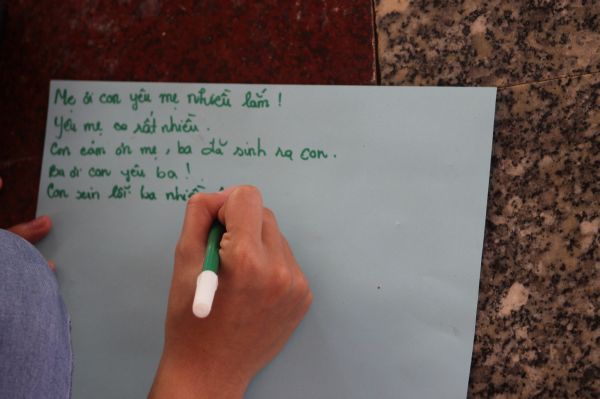 Mẹ ơi con yêu mẹ nhiều lắm !
Yêu mẹ co rất nhiều .
Con cảm ơn mẹ, ba đã sinh ra con .
Ba ơi con yêu ba !
Con sein lỗi ba nhiều